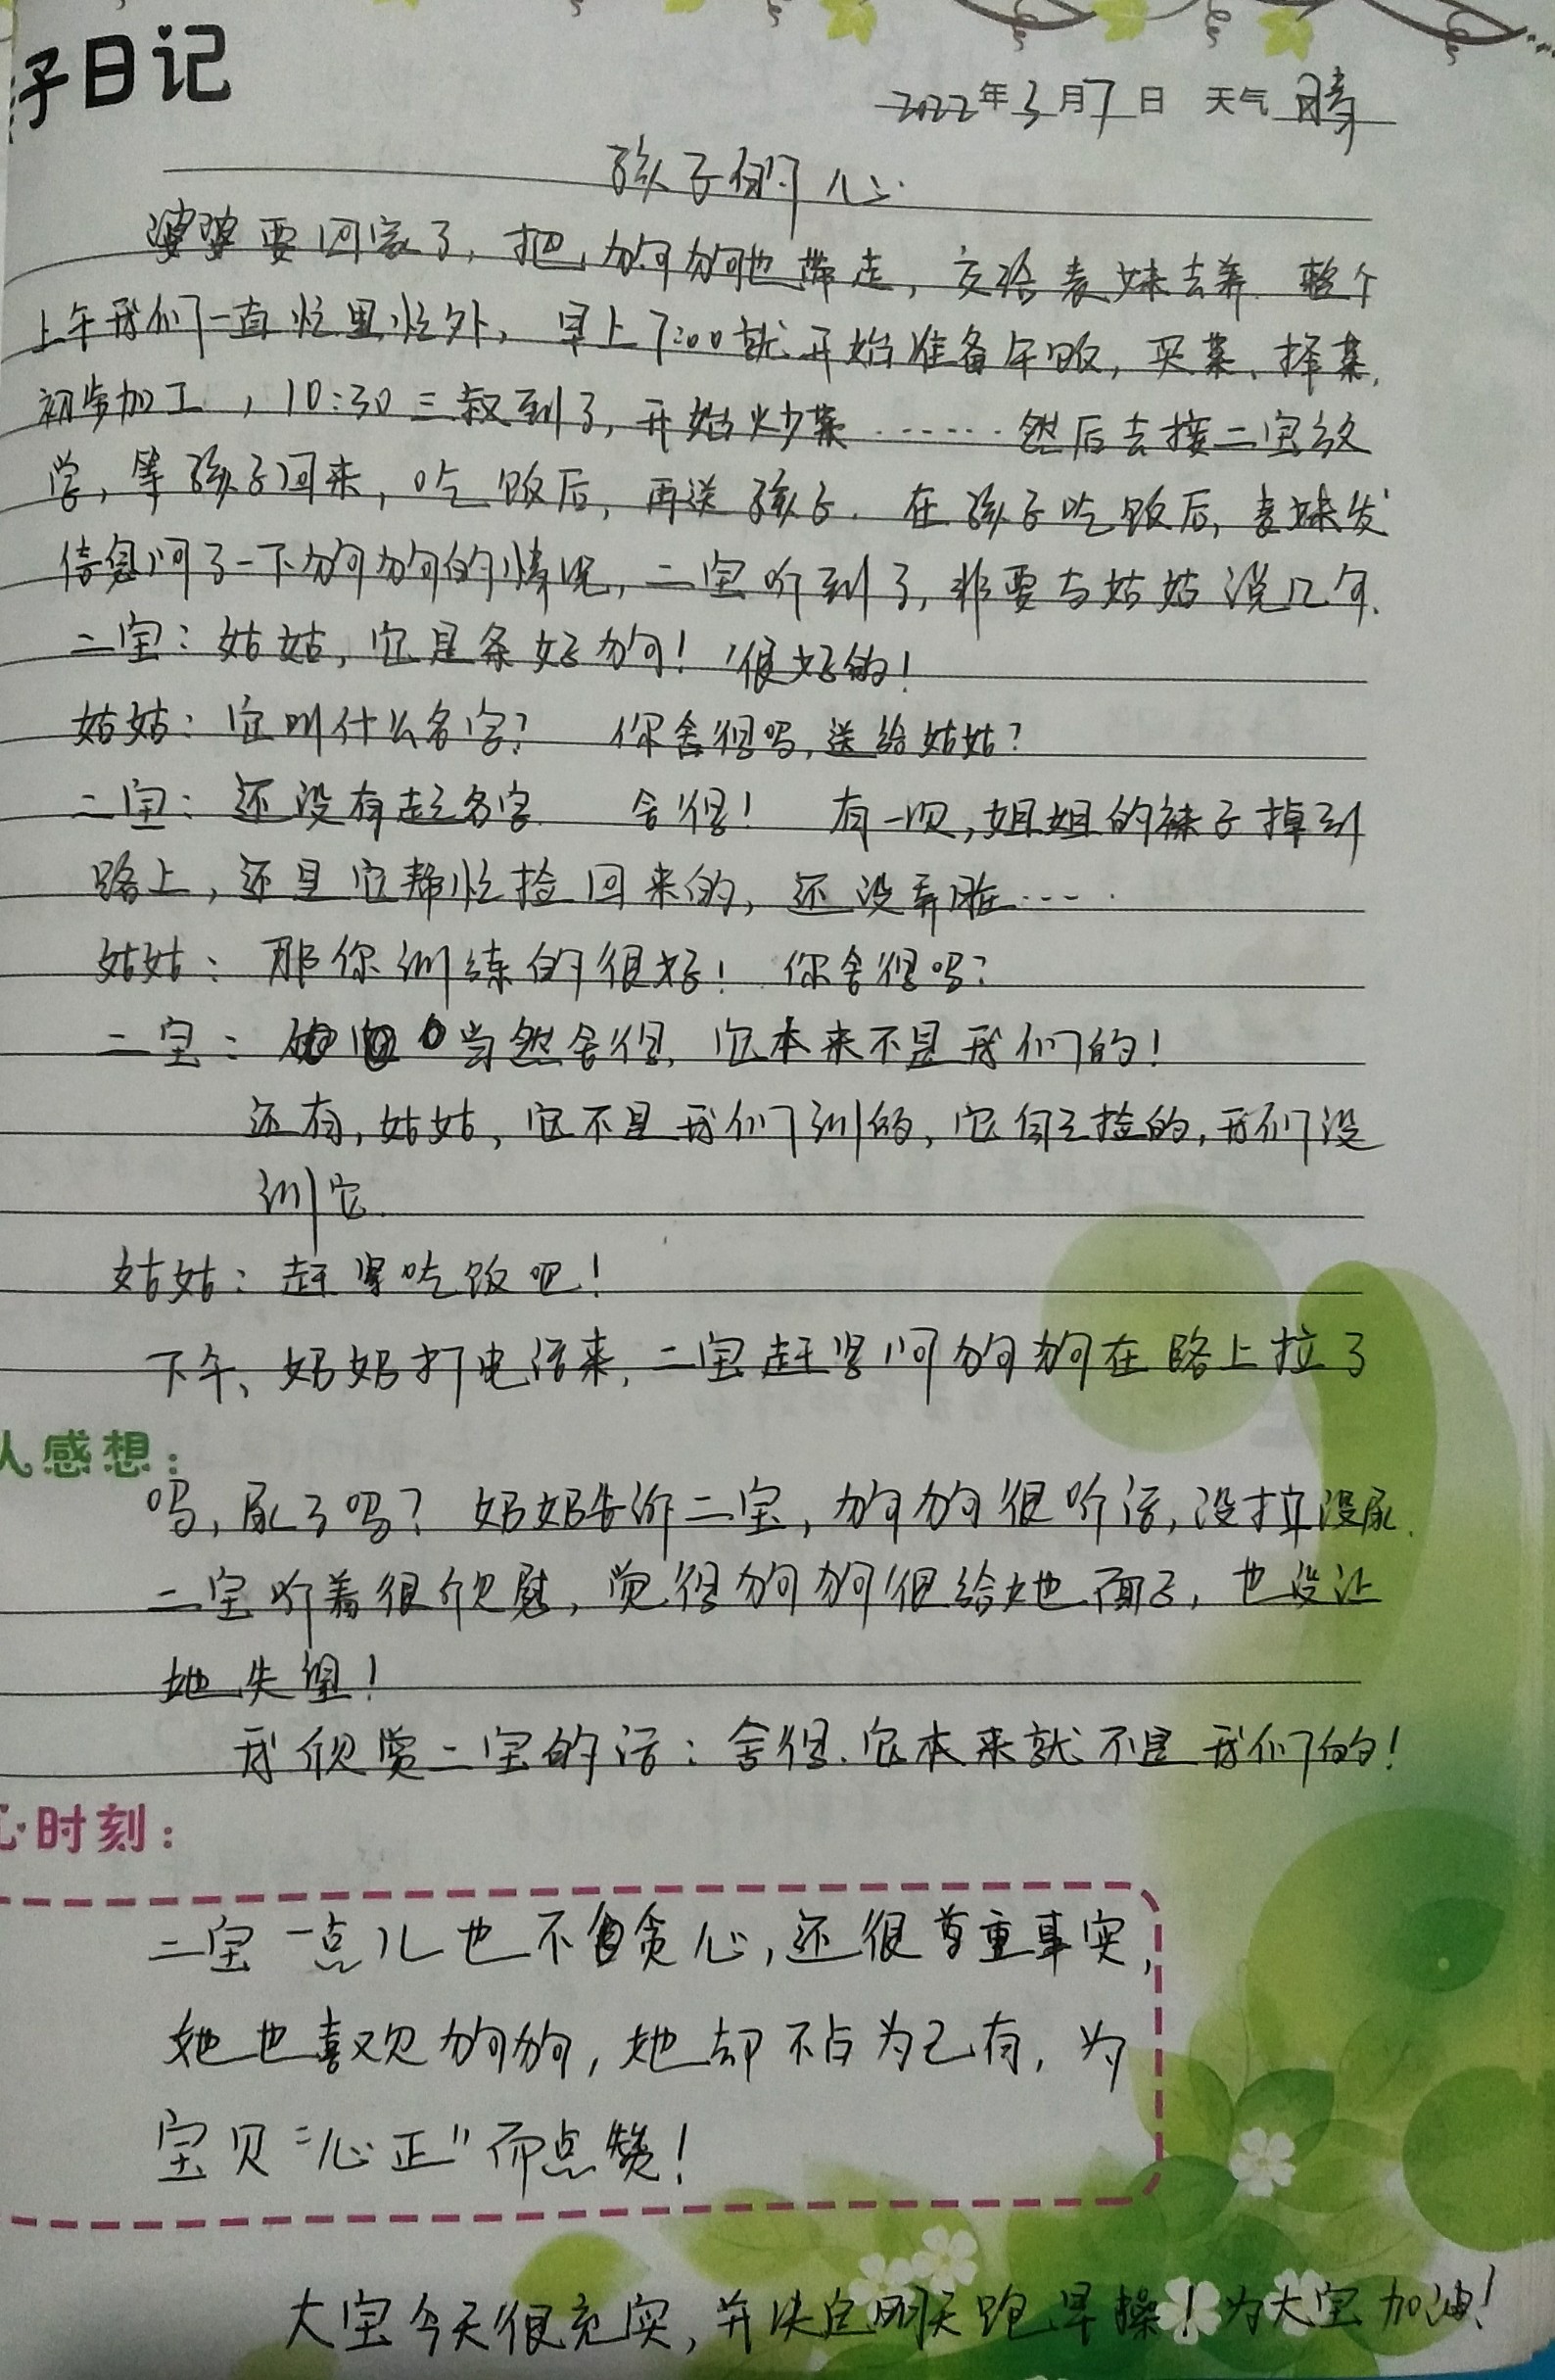 子日记
2022年3月7日 天气 晴
孩子的心
婆婆要回家了,把狗狗也带走,交给表妹去养.整个
上午我们一直忙里忙外,早上7:00就开始准备午饭,买菜、择菜,
初步加工,10:30三叔到了,开始炒菜……然后去接二宝放
学,等孩子回来,吃饭后,再送孩子.在孩子吃饭后,表妹发
信息问了一下狗狗的情况,二宝听到了,非要与姑姑说几句.
二宝:姑姑,它是条好狗!很好的!
姑姑:它叫什么名字? 你舍得吗,送给姑姑?
二宝:还没有起名字 舍得! 有一次,姐姐的袜子掉到
路上,还是它帮忙捡回来的,还没弄脏……
姑姑:那你训练的很好!你舍得吗?
二宝:当然舍得,它本来不是我们的!
还有,姑姑,它不是我们训的,它自己捡的,我们没
训它.
姑姑:赶紧吃饭吧!
下午、奶奶打电话来,二宝赶紧问狗狗在路上拉了
人感想:
吗,尿了吗?奶奶告诉二宝,狗狗很听话,没拉没尿.
二宝听着很欣慰,觉得狗狗很给她面子,也没让
她失望!
我欣赏二宝的话:舍得.它本来就不是我们的!
心时刻:
二宝一点儿也不贪心,还很尊重事实,
她也喜欢狗狗,她却不占为己有,为
宝贝“心正”而点赞!
大宝今天很充实,并决定明天跑早操!为大宝加油!